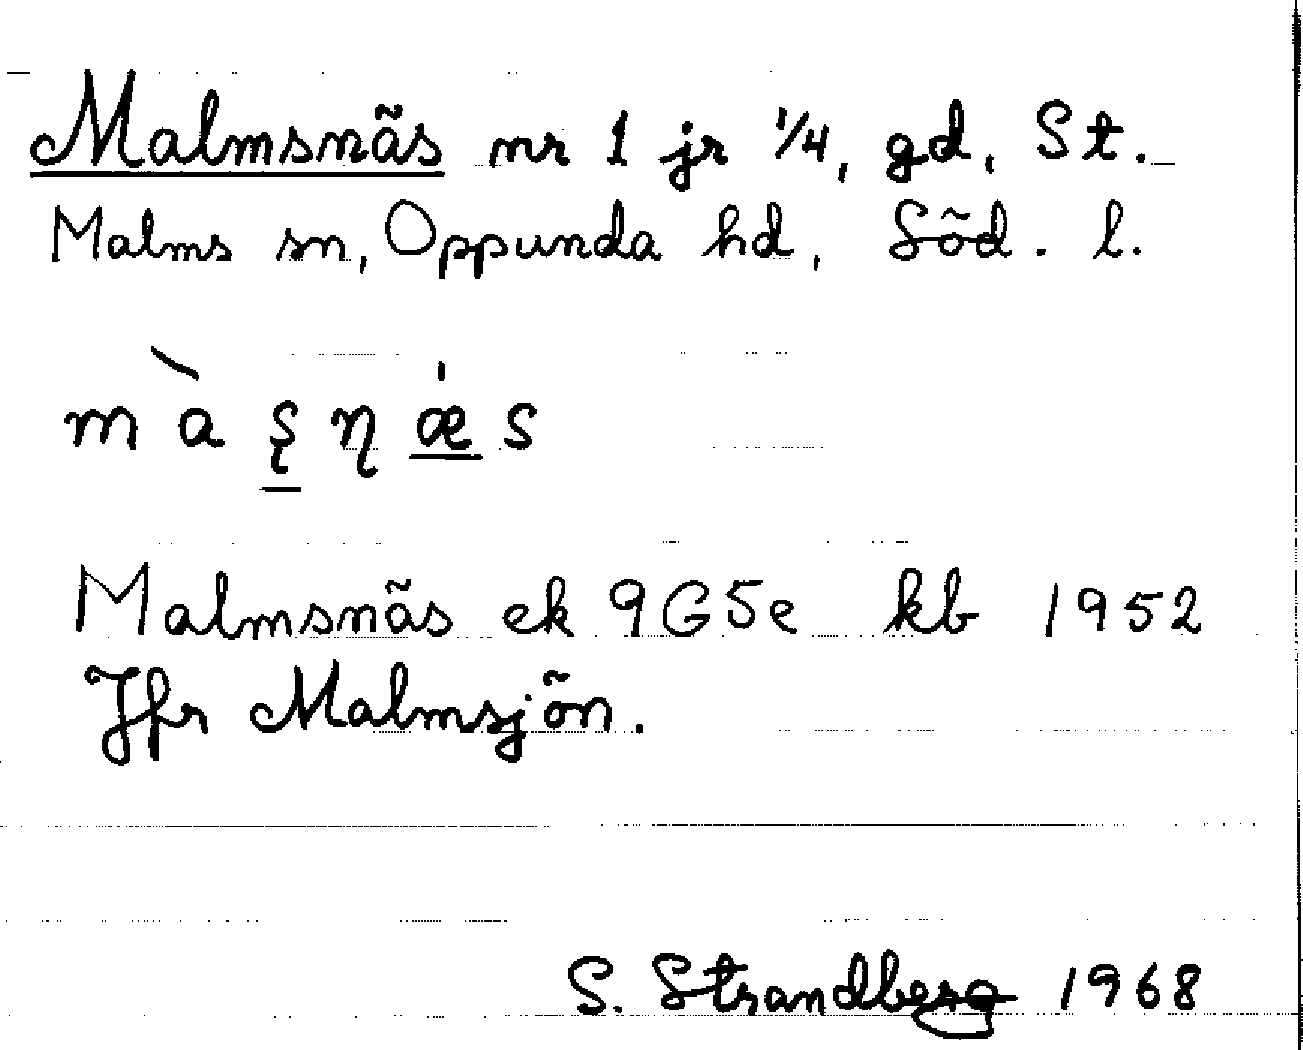 Malmsnäs nr 1 jr 1/4, gd, St.
Malms sn, Oppunda hd, Söd. l.
m à ʂ ɳ ǽ s
Malmsnäs ek 9G5e kb 1952
Jfr Malmsjön.
S. Strandberg 1968